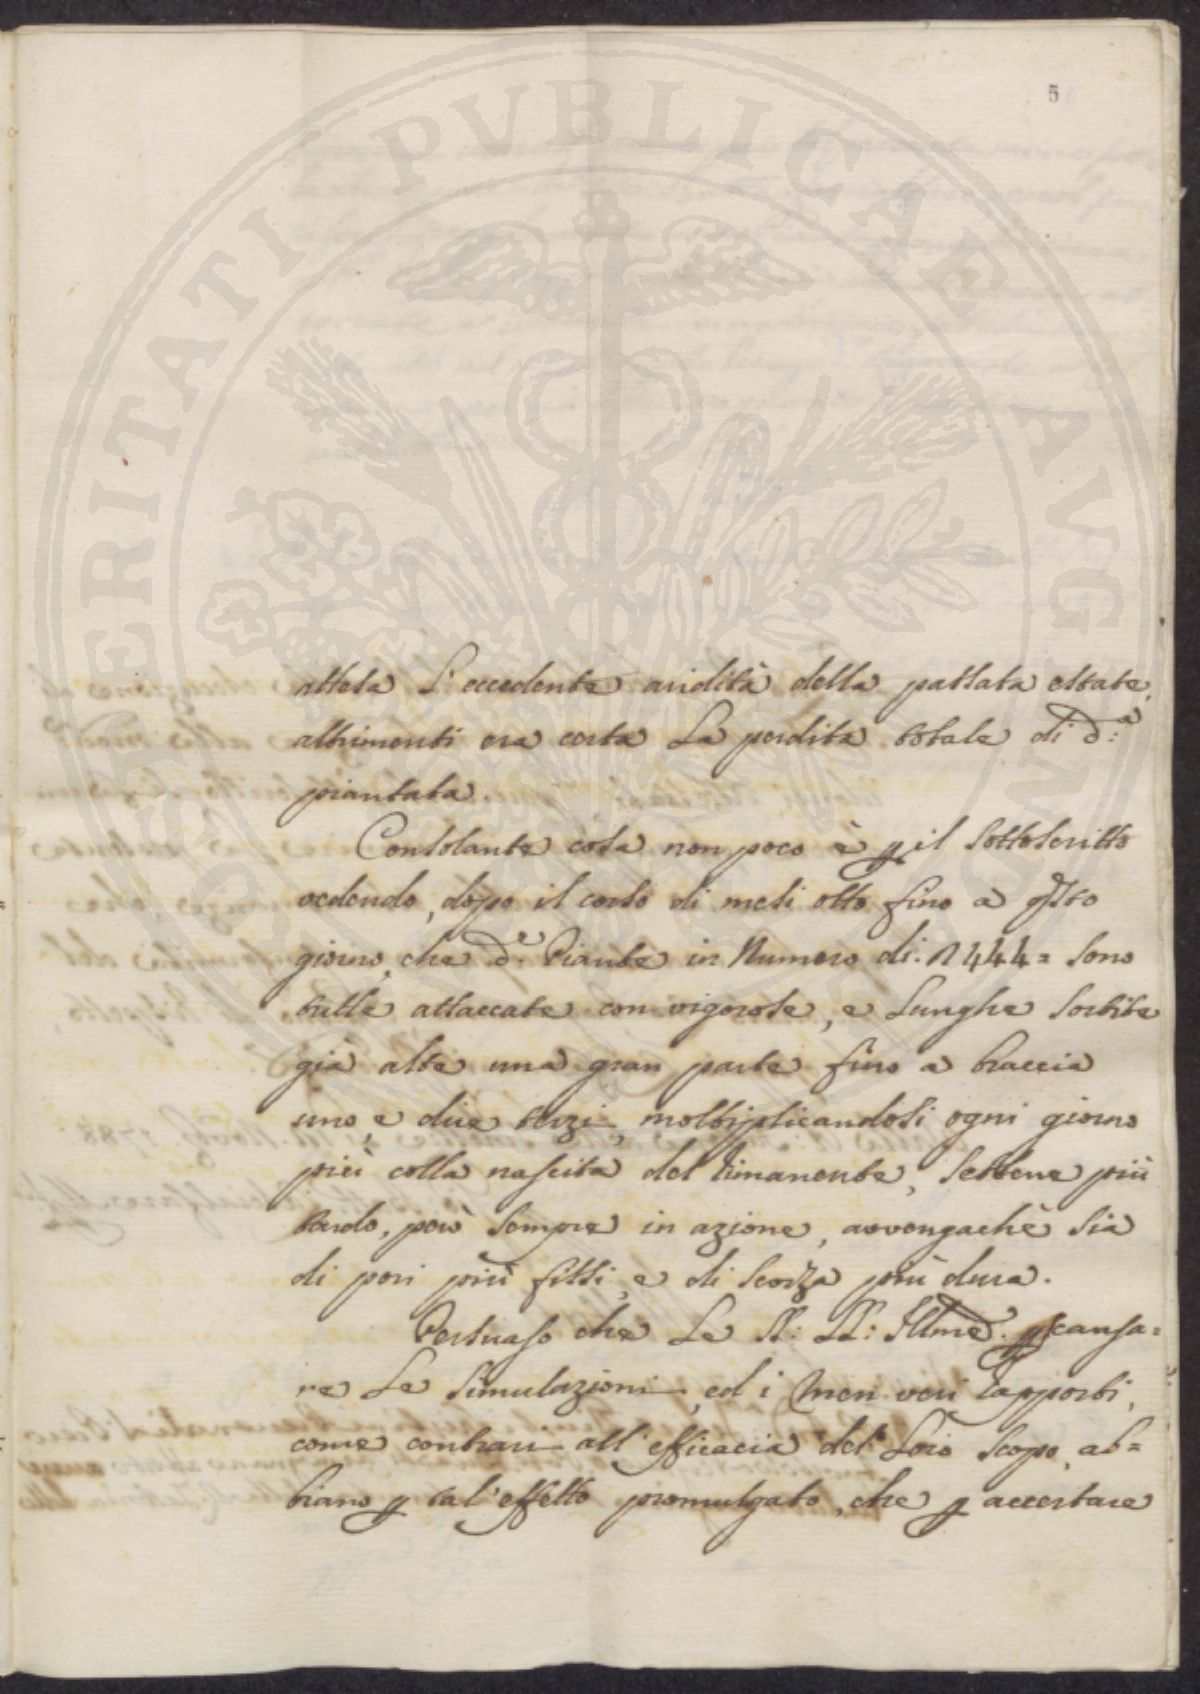 5
POSTERITATI PVBLICAE AVG
attesa L'eccedente aridità della passata estate,
altrimenti era certa La perdita totale di d.ª
piantata.
Consolante cosa non poco è p il Sottoscritto
vedendo, dopo il corso di mesi otto fino a qsto
giorno, che d.e Piante in Numero di. n 444= sono
tutte attaccate con vigorose, e Lunghe Sortite
già alte una gran parte fino a braccia
uno, e due terzi, moltipplicandosi ogni giorno
più colla nascita del rimanente, Sebbene più
tardo, però Sempre in azione, avvengachè Sia
di pori più fissi, e di Scorza più dura.
Persuaso che Le SS: LL: Illme d. p scansa=
re Le Simulazioni, ed i men veri rapporti,
come contrari all'efficacia del Loro Scopo, ab=
biano p tal'effetto promulgato, che p accertare